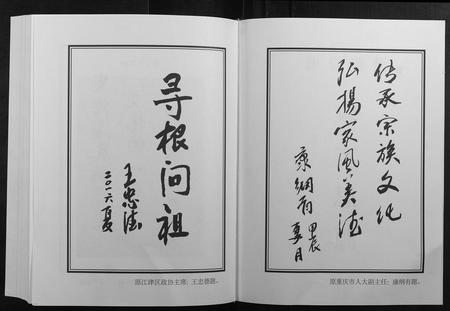 寻根问祖
王忠德
二〇一六夏
原江津区政协主席：王忠德题。
传承宗族文化
弘揚家風美德
康纲有
甲辰
夏月
原重庆市人大副主任：康纲有题。